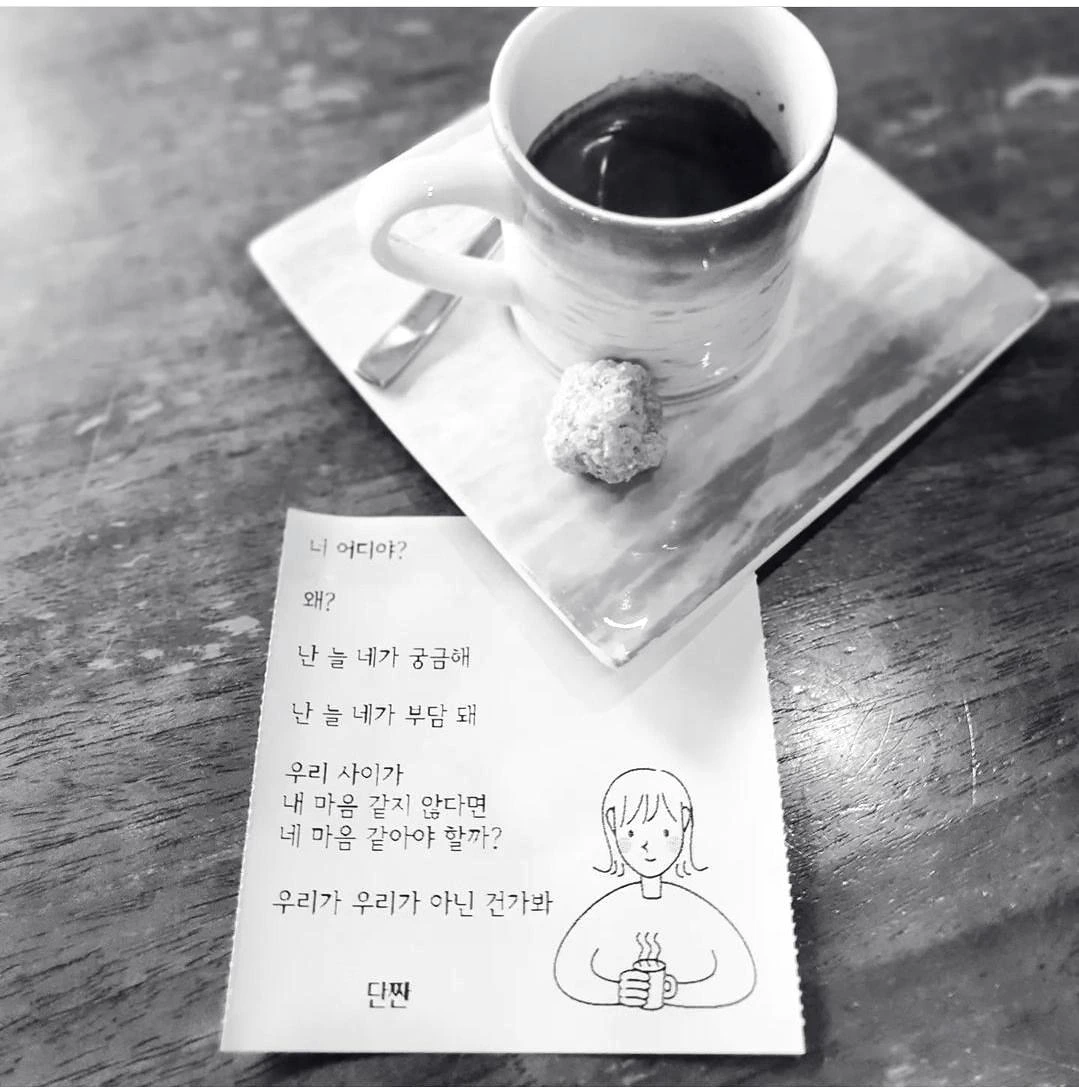 너 어디야?
왜?
난 늘 네가 궁금해
난 늘 네가 부담 돼
우리 사이가
내 마음 같지 않다면
네 마음 같아야 할까?
우리가 우리가 아닌 건가봐
단짠